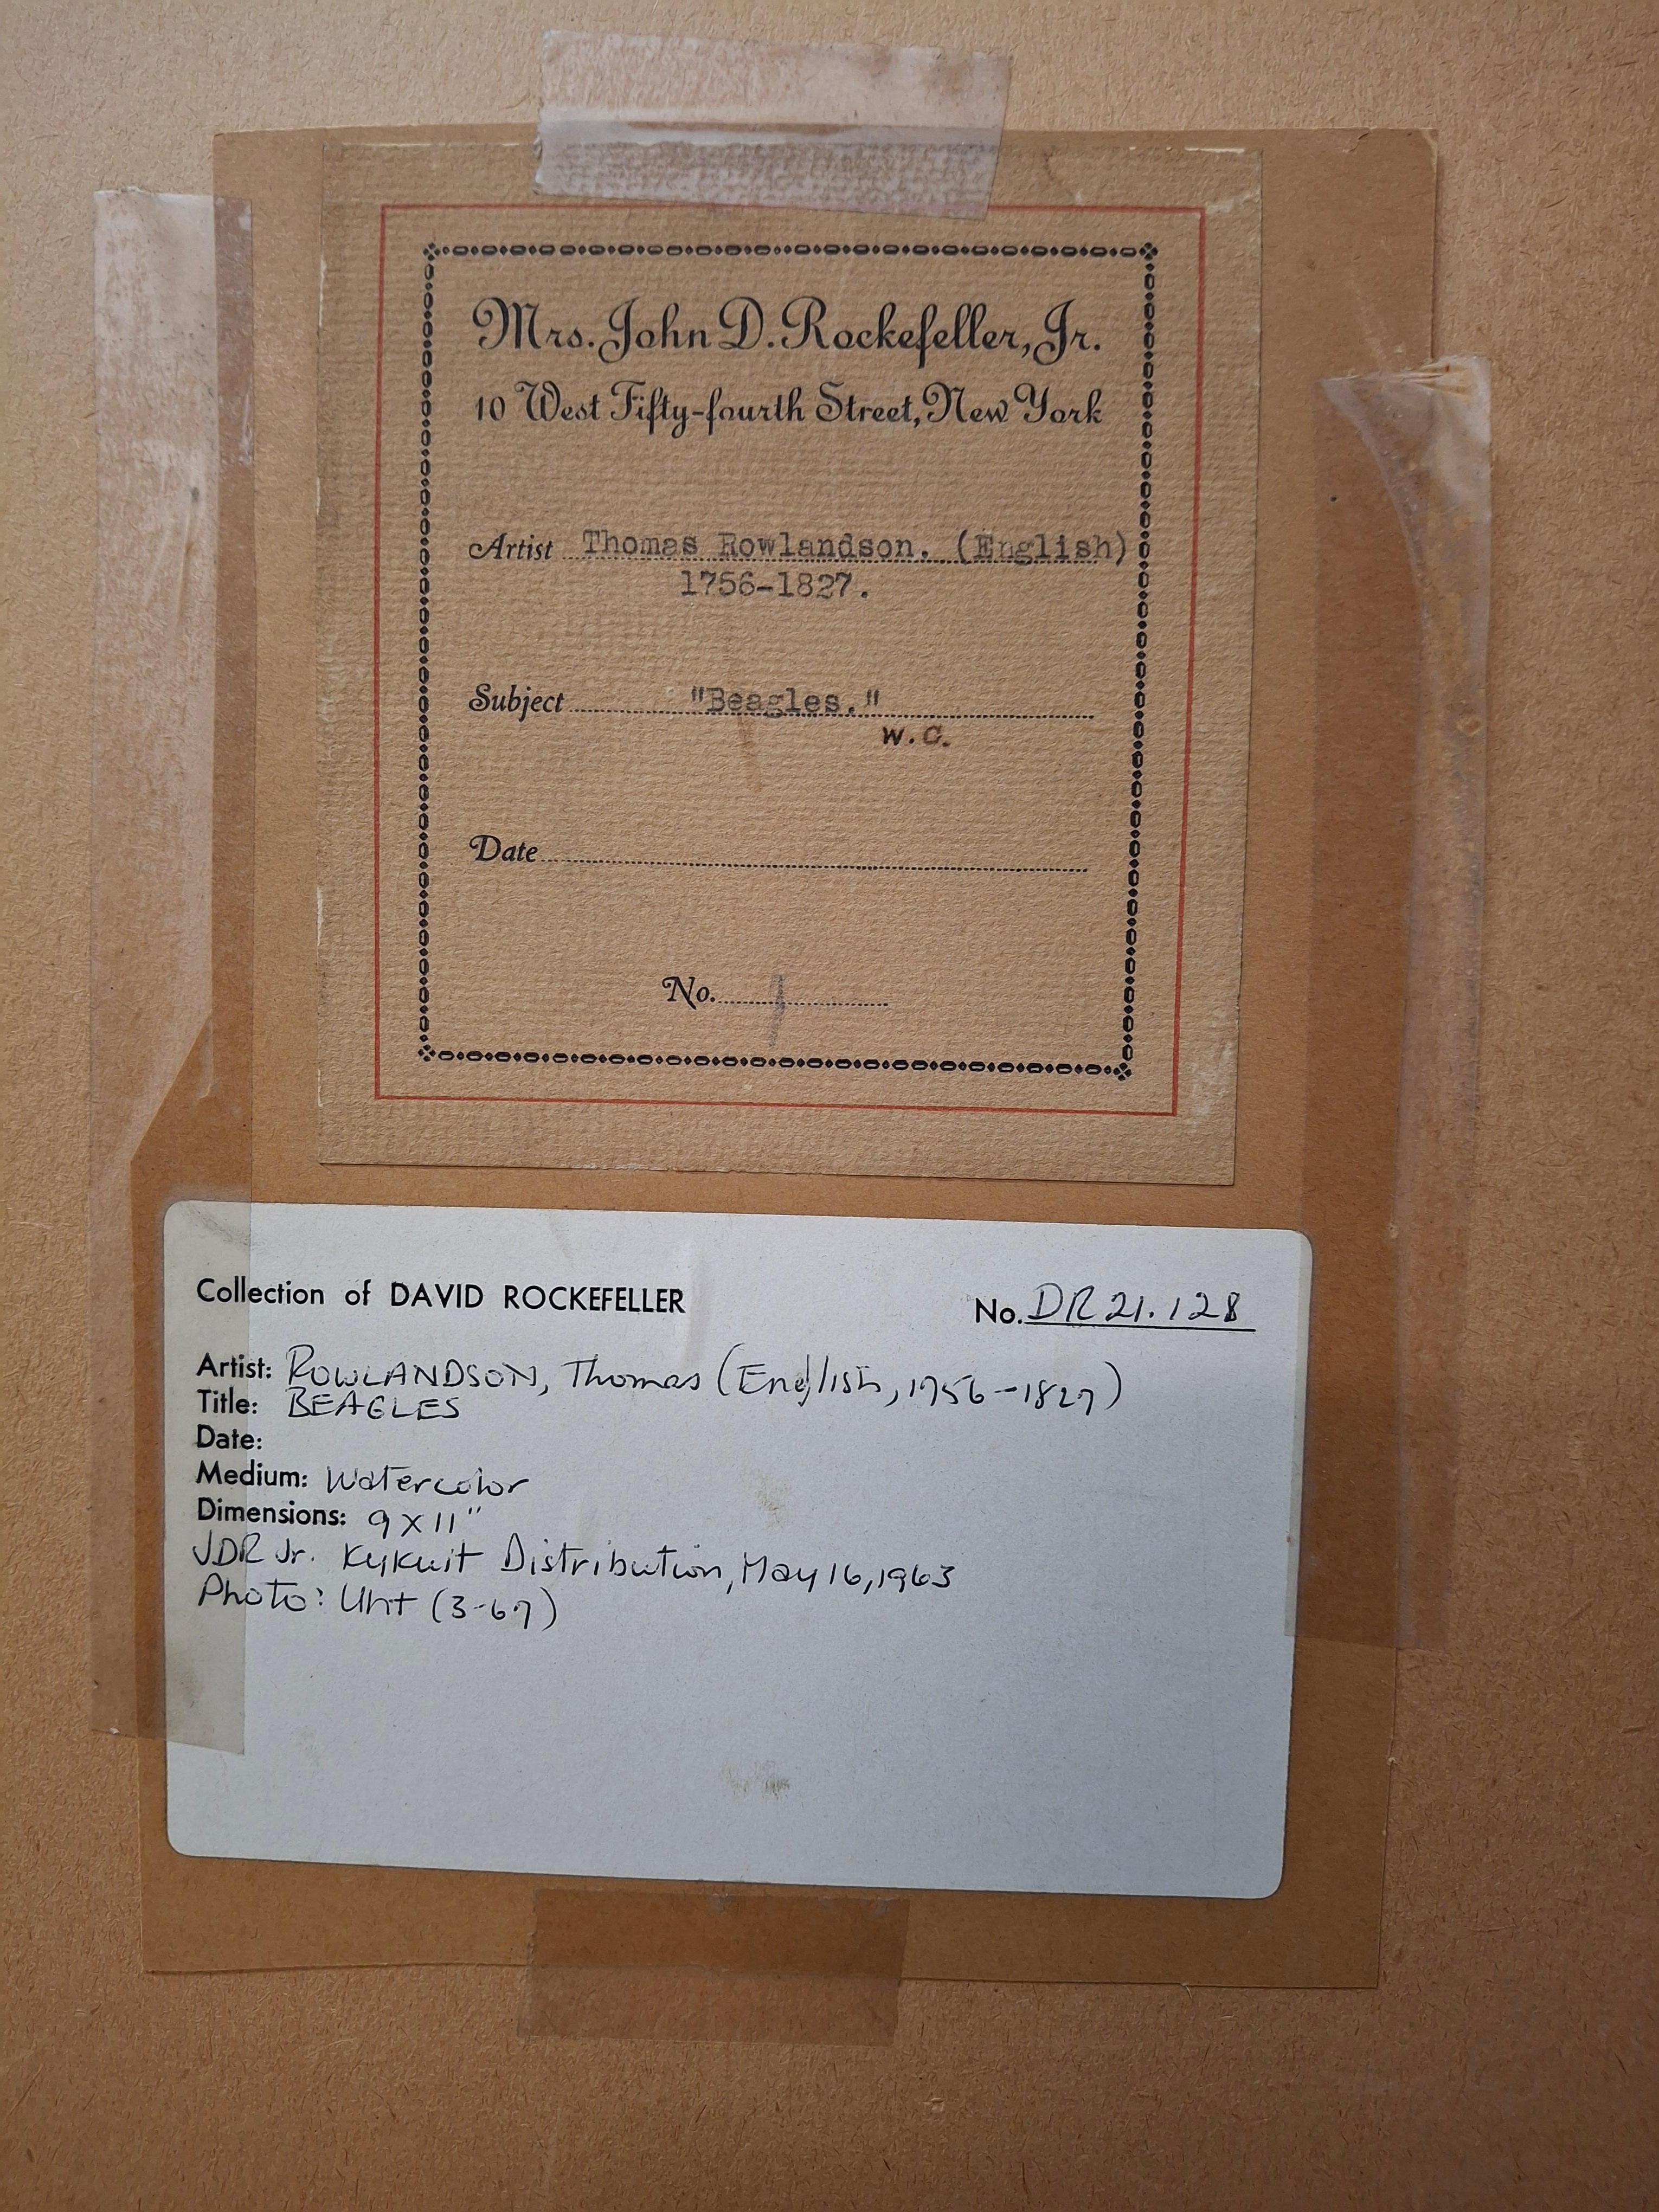 Mrs. John D. Rockefeller, Jr.
10 West Fifty-fourth Street, New York
Artist Thomas Rowlandson. (English)
1756-1827.
Subject "Beagles."
w.c.
Date
No. 1
Collection of DAVID ROCKEFELLER No. DR 21.128
Artist: ROWLANDSON, Thomas (English, 1756-1827)
Title: BEAGLES
Date:
Medium: Watercolor
Dimensions: 9 X 11"
JDR Jr. Kykuit Distribution, May 16, 1963
Photo: Uht (3-67)